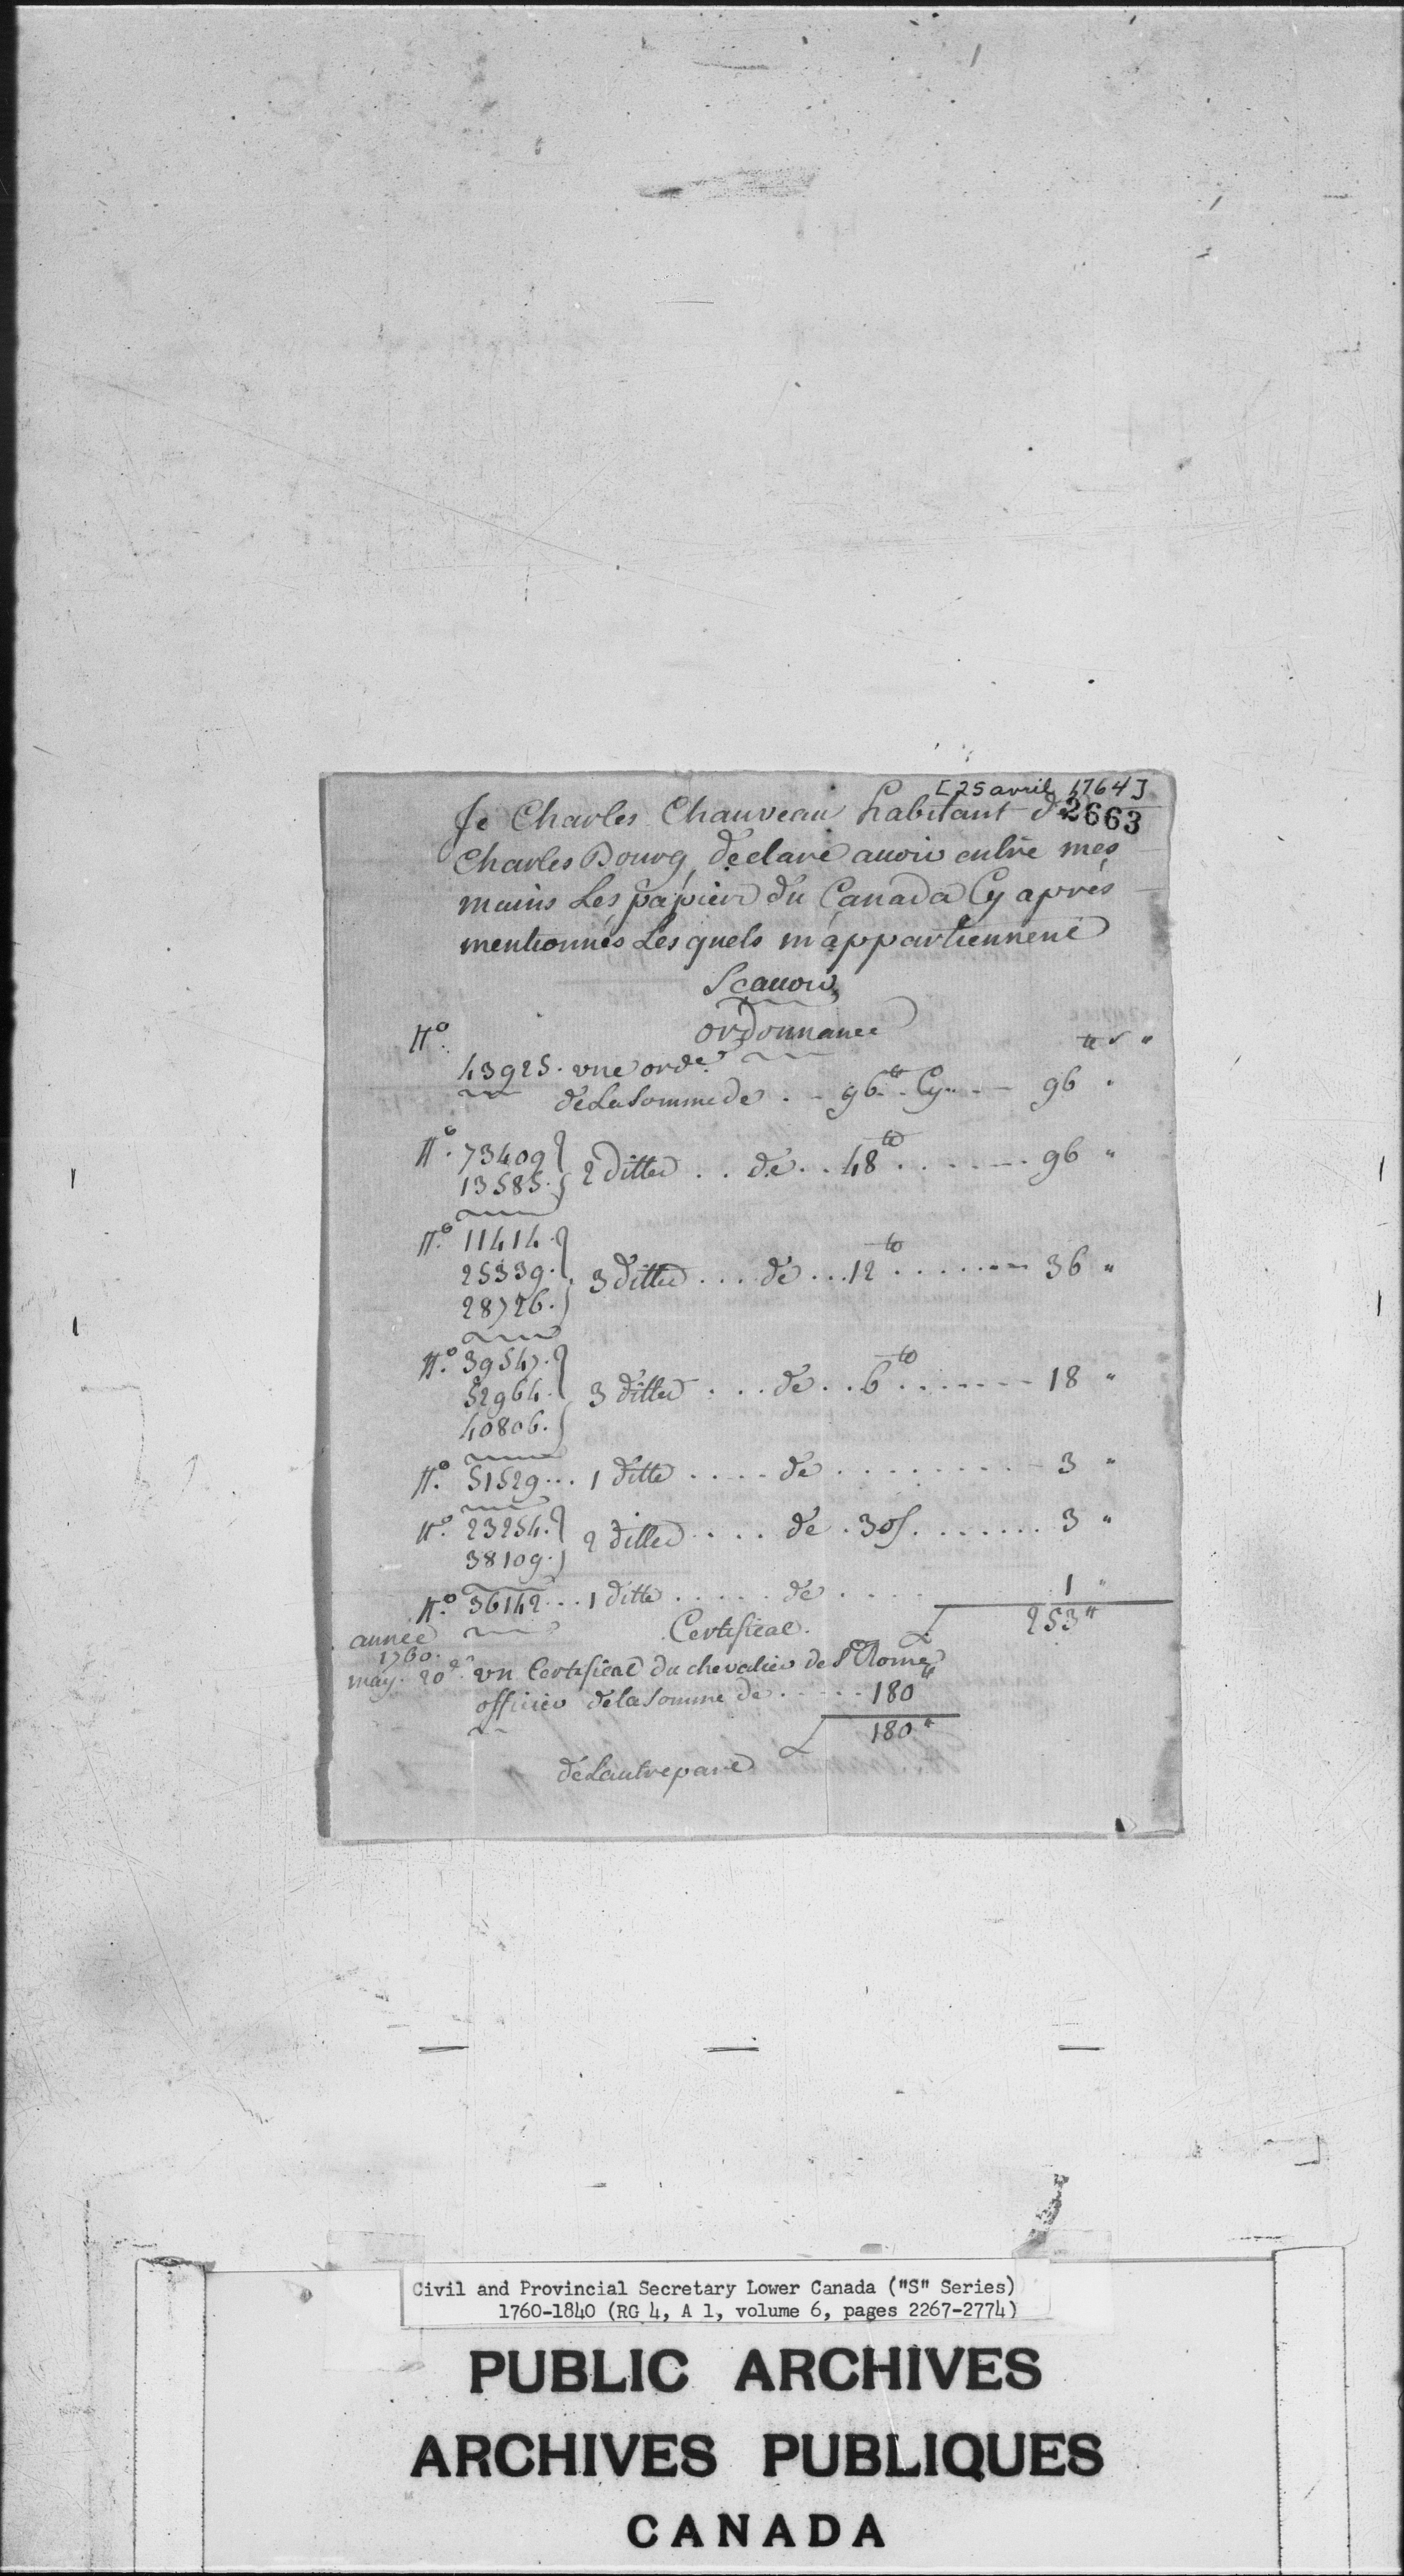 [25 avril 1764]
2663
Je Charles Chauveau habitant d
Charles Bourg, déclare auoir entre mes
mains Les papier du Canada Cy aprés
mentionnés Les quels m'appartiennent
Scauoir
ordonnance
N.º
tt s "
43925. vne ord.e
de La Somme de . - 96.tt Cy - - - 96 "
N.º 73409
13585. 2 dittes . . de . . 48tt . . . . . . 96 "
N.º 11414.
25339.
28726. 3 dittes . . . . de . . . 12tt . . . . . . . 36 "
N.º 39547.
52964.
40806. 3 dittes . . . de . . 6tt . . . . . . . 18 "
N.º 51529 . . . 1 ditte . . . . . de . . . . . . . . . 3 "
N.º 23254.
38109. 2 dittes . . . . de . 30s. . . . . . . 3 "
N.º 36142 . . . 1 ditte . . . . . . de . . . . 1 "
253tt
Certificat.
année
1760.
may. 20e. vn Certificat du chevalier de St Rome
officier de la Somme de . . . . . 180tt
180tt
de Lautre part
Civil and Provincial Secretary Lower Canada ("S" Series)
1760-1840 (RG 4, A 1, volume 6, pages 2267-2774)
PUBLIC ARCHIVES
ARCHIVES PUBLIQUES
CANADA